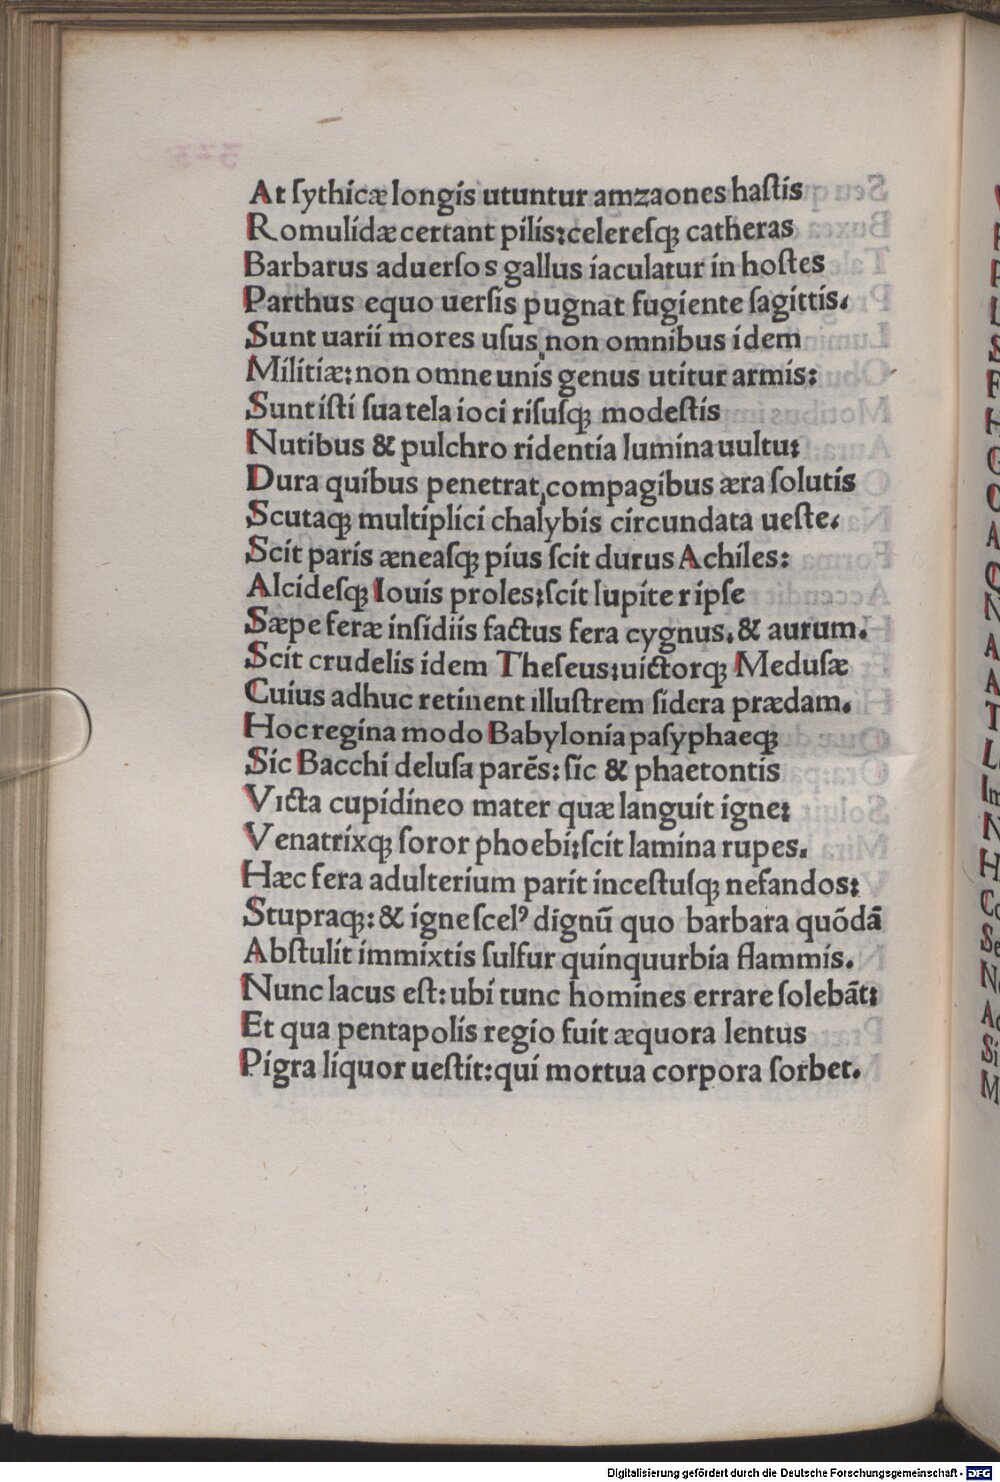 At ſythicæ longis utuntur amzaones haſtis
Romulidæ certant pilis: celereſqꝫ catheras
Barbarus aduerſos gallus iaculatur in hoſtes
Parthus equo uerſis pugnat fugiente ſagittis.
Sunt uarii mores uſus, non omnibus idem
Militiæ: non omne unis genus utitur armis:
Sunt iſti ſua tela ioci riſuſqꝫ modeſtis
Nutibus & pulchro ridentia lumina uultu:
Dura quibus penetrat, compagibus æra ſolutis
Scutaqꝫ multiplici chalybis circundata ueſte.
Scit paris æneaſqꝫ pius ſcit durus Achiles:
Alcideſqꝫ Iouis proles: ſcit Iupiter ipſe
Sæpe feræ inſidiis factus fera cygnus. & aurum.
Scit crudelis idem Theſeus: uictorqꝫ Meduſæ
Cuius adhuc retinent illuſtrem ſidera prædam.
Hoc regina modo Babylonia paſyphaeqꝫ
Sic Bacchi deluſa parēs: ſic & phaetontis
Victa cupidineo mater quæ languit igne:
Venatrixqꝫ ſoror phoebi: ſcit lamina rupes.
Hæc fera adulterium parit inceſtuſqꝫ nefandos:
Stupraqꝫ: & igne ſcelꝰ dignū quo barbara quōdā
Abſtulit immixtis ſulfur quinquurbia flammis.
Nunc lacus eſt: ubi tunc homines errare ſolebāt:
Et qua pentapolis regio fuit æquora lentus
Pigra liquor ueſtit: qui mortua corpora ſorbet.
Digitalisierung gefördert durch die Deutsche Forschungsgemeinschaft - DFG